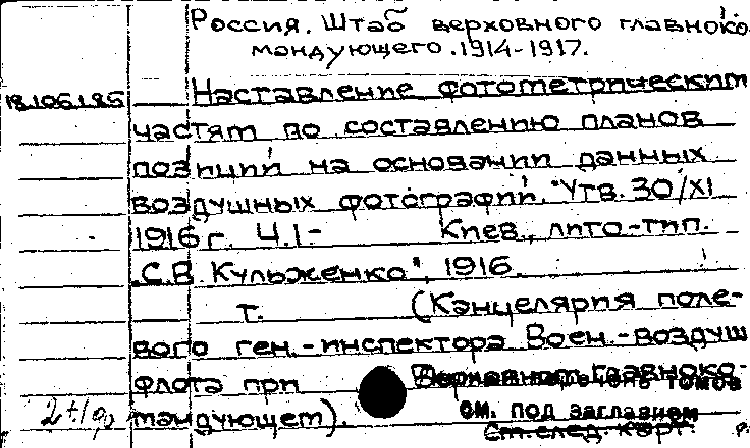 Россия. Штаб верховного главноко-
мандующего. 1914-1917.
18.106.1.85 Наставление фотометрическим
частям по составлению планов
позиций на основании данных
воздушных фотографий. Утв. 30/XI
1916 г. Ч.1- Киев, лито-тип.
"С.В. Кульженко", 1916.
т. (Канцелярия поле-
вого ген.-инспектора Воен.-воздуш
флота при Верховном главноко-
томов
мандующем).
см. под заглавием
См. след. карт.